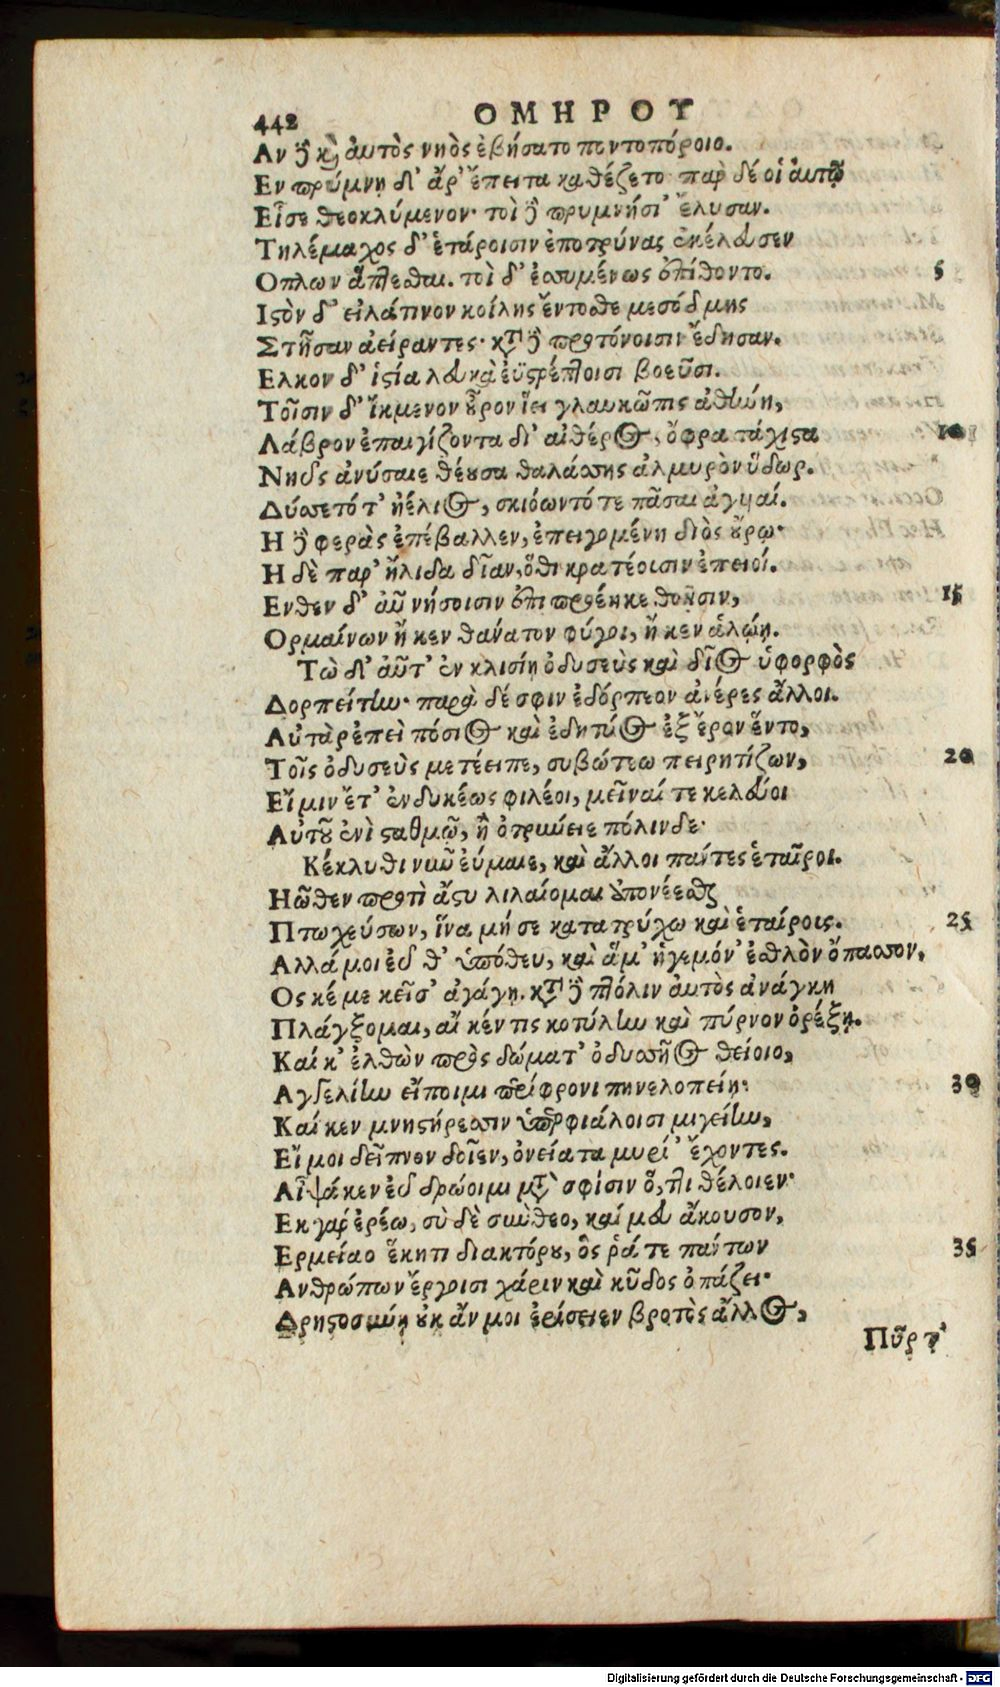 442 ΟΜΗΡΟΥ
Αν δὲ καὶ ἀυτὸς νηὸς ἐβήσατο ποντοπόροιο.
Εν πρύμνῃ δ' ἄρ' ἔπειτα καθέζετο· παρ δέ οἱ ἀυτῷ
Εἷσε θεοκλύμενον· τοὶ δὲ πρυμνήσι' ἔλυσαν.
Τηλέμαχος δ' ἑτάροισιν ἐποτρύνας ἐκέλευσεν
Οπλων ἅπτεσθαι. τοὶ δ' ἐσσυμένως ἐπίθοντο. 5
Ιστὸν δ' εἰλάτινον κοίλης ἔντοσθε μεσόδμης
Στῆσαν ἀείραντες· κατὰ δὲ προτόνοισιν ἔδησαν.
Ελκον δ' ἱστία λευκὰ ἐϋστρέπτοισι βοεῦσι.
Τοῖσιν δ' ἴκμενον οὖρον ἵει γλαυκῶπις ἀθήνη,
Λάβρον ἐπαιγίζοντα δι' αἰθέρος, ὄφρα τάχιστα 10
Νηῦς ἀνύσειε θέουσα θαλάσσης ἁλμυρὸν ὕδωρ.
Δύσετό τ' ἠέλιος, σκιόωντό τε πᾶσαι ἀγυιαί.
Η δὲ φερὰς ἐπέβαλλεν, ἐπειγομένη διὸς οὔρῳ·
Η δὲ παρ' ἤλιδα δῖαν, ὅθι κρατέουσιν ἐπειοί.
Ενθεν δ' ἀῦ νήσοισιν ἐπι προέηκε θοῇσιν, 15
Ορμαίνων ἤ κεν θάνατον φύγοι, ἤ κεν ἁλώῃ.
Τὼ δ' ἀῦτ' ἐν κλισίῃ ὀδυσεὺς καὶ δῖος ὑφορφὸς
Δορπείτην· παρὰ δέ σφιν ἐδόρπεον ἀνέρες ἄλλοι.
Αὐτὰρ ἐπεὶ πόσιος καὶ ἐδητύος ἐξ ἔρον ἕντο,
Τοῖς ὀδυσεὺς μετέειπε, συβώτεω πειρητίζων, 20
Εἴ μιν ἔτ' ἐνδυκέως φιλέοι, μεῖναί τε κελεύοι
Αὐτοῦ ἐνὶ σταθμῷ, ἢ ὀτρύνειε πόλινδε·
Κέκλυθι νῦν εὔμαιε, καὶ ἄλλοι πάντες ἑταῖροι.
Ηῶθεν προτὶ ἄστυ λιλαίομαι ἀπονέεσθαι
Πτωχεύσων, ἵνα μή σε κατατρύχω καὶ ἑταίρους. 25
Αλλά μοι εὖ θ' ὑπόθευ, καὶ ἅμ' ἡγεμόν' ἐσθλὸν ὄπασσον,
Ος κέ με κεῖσ' ἀγάγῃ. κατὰ δὲ πτόλιν ἀυτὸς ἀνάγκῃ
Πλάγξομαι, αἴ κέν τις κοτύλην καὶ πύρνον ὀρέξῃ.
Καί κ' ἐλθὼν πρὸς δώματ' ὀδυσσῆος θείοιο,
Αγγελίην εἴποιμι περίφρονι πηνελοπείῃ· 30
Καί κεν μνηστήρεσσιν ὑπερφιάλοισι μιγείην,
Εἴ μοι δεῖπνον δοῖεν, ὀνείατα μυρί' ἔχοντες.
Αἶψά κεν εὖ δρώοιμι μετὰ σφίσιν ὅ,ττι θέλοιεν·
Εκ γάρ ἐρέω, σὺ δὲ σύνθεο, καί μευ ἄκουσον,
Ερμείαο ἕκητι διακτόρου, ὅς ῥά τε πάντων 35
Ανθρώπων ἔργοισι χάριν καὶ κῦδος ὀπάζει·
Δρηστοσύνῃ οὐκ ἄν μοι ἐρίσειεν βροτὸς ἄλλος,
Πῦρ τ'